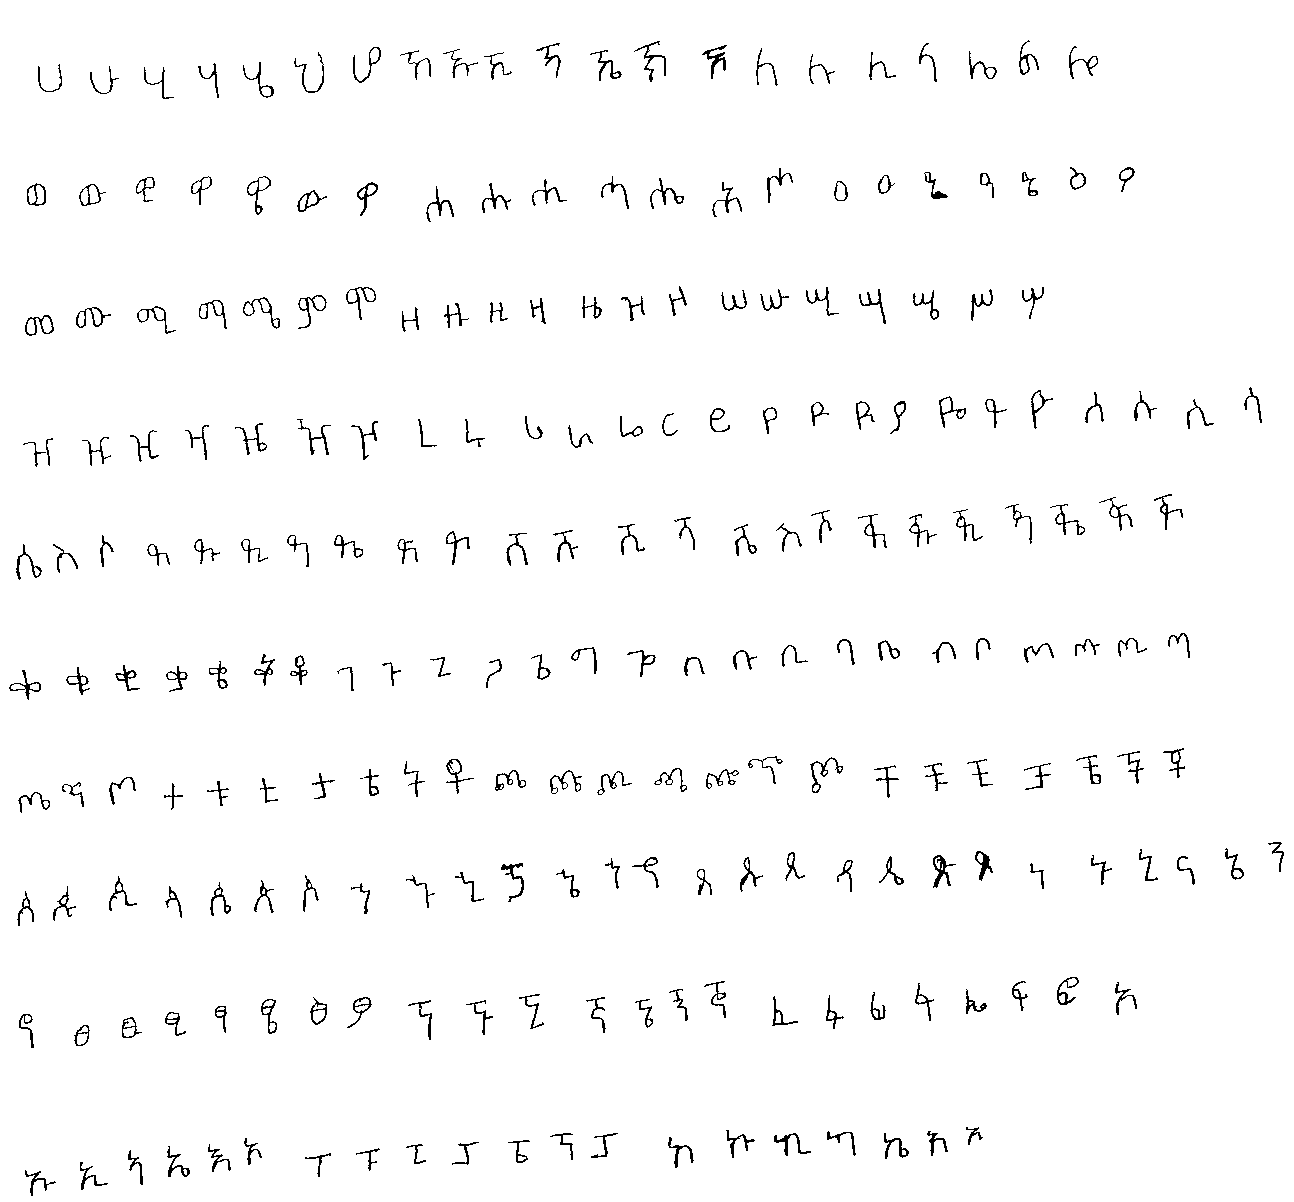 ሀ ሁ ሂ ሃ ሄ ህ ሆ ኸ ኹ ኺ ኻ ኼ ኽ ኾ ለ ሉ ሊ ላ ሌ ል ሎ
ወ ዉ ዊ ዋ ዌ ው ዎ ሐ ሑ ሒ ሓ ሔ ሕ ሖ ዐ ዑ ዒ ዓ ዔ ዕ ዖ
መ ሙ ሚ ማ ሜ ም ሞ ዘ ዙ ዚ ዛ ዜ ዝ ዞ ሠ ሡ ሢ ሣ ሤ ሥ ሦ
ዠ ዡ ዢ ዣ ዤ ዥ ዦ ረ ሩ ሪ ራ ሬ ር ሮ የ ዩ ዪ ያ ዬ ይ ዮ ሰ ሱ ሲ ሳ
ሴ ስ ሶ ደ ዱ ዲ ዳ ዴ ድ ዶ ሸ ሹ ሺ ሻ ሼ ሽ ሾ ጀ ጁ ጂ ጃ ጄ ጅ ጆ
ቀ ቁ ቂ ቃ ቄ ቅ ቆ ገ ጉ ጊ ጋ ጌ ግ ጎ በ ቡ ቢ ባ ቤ ብ ቦ ጠ ጡ ጢ ጣ
ጤ ጥ ጦ ተ ቱ ቲ ታ ቴ ት ቶ ጨ ጩ ጪ ጫ ጬ ጭ ጮ ቸ ቹ ቺ ቻ ቼ ች ቾ
ጰ ጱ ጲ ጳ ጴ ጵ ጶ ኀ ኁ ኂ ኃ ኄ ኅ ኆ ጸ ጹ ጺ ጻ ጼ ጽ ጾ ነ ኑ ኒ ና ኔ ን
ኖ ፀ ፁ ፂ ፃ ፄ ፅ ፆ ኘ ኙ ኚ ኛ ኜ ኝ ኞ ፈ ፉ ፊ ፋ ፌ ፍ ፎ አ
ኡ ኢ ኣ ኤ እ ኦ ፐ ፑ ፒ ፓ ፔ ፕ ፖ ከ ኩ ኪ ካ ኬ ክ ኮ